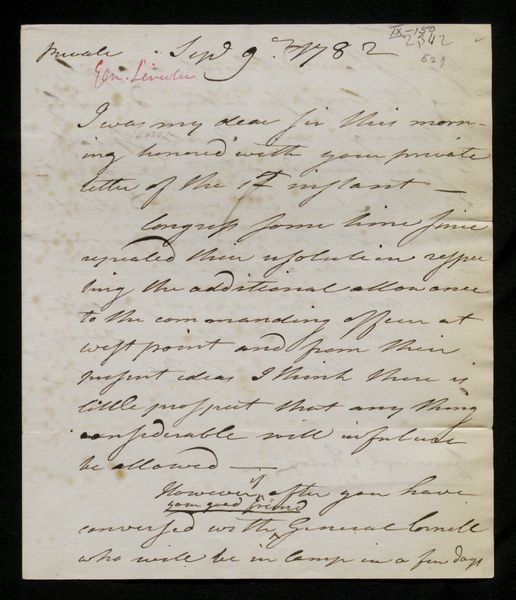 IX-150
2342
621
private Sept 9th 1782
Gen. Lincoln
I was my dear sir this morn-
ing honored with your private
letter of the 1st instant —
Congress some time since
repealed their resolution respec
ting the additional allowance
to the commanding officer at
west point and from their
present ideas I think there is
little prospect that any thing
considerable will in future
be allowed —
However if after you have
your good friend
conversed with General Cornell
who will be in Camp in a few days